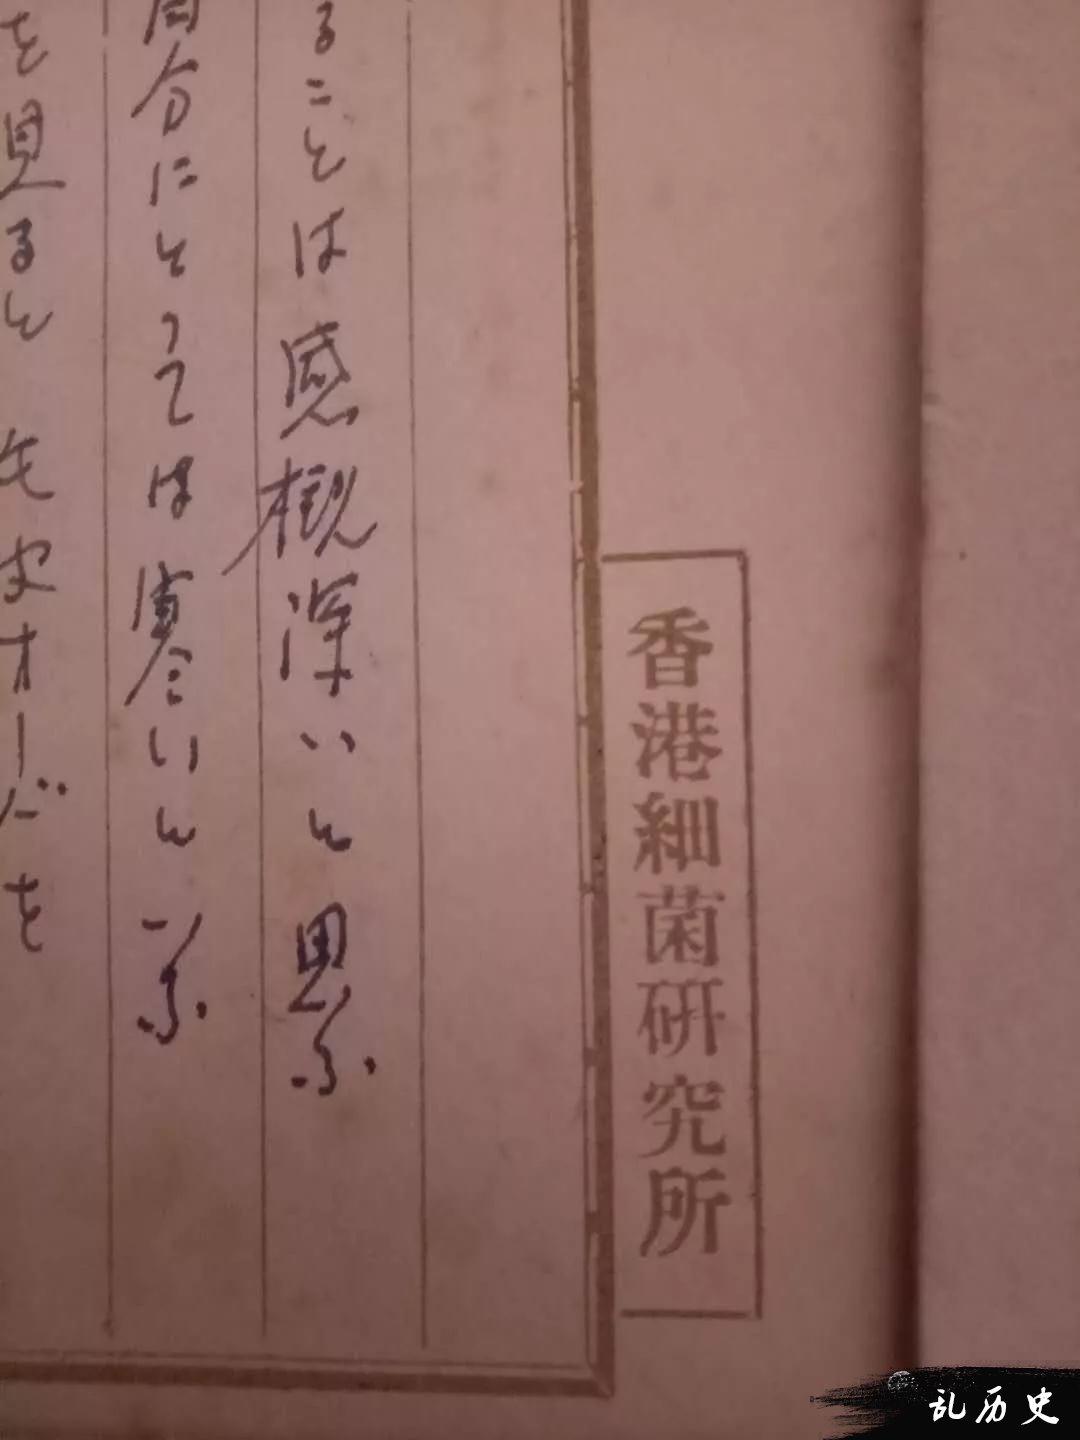 香港細菌研究所
ることは感概深いと思ふ
自分にとっては寒いと云ふ
を見ると先史オーバを
乱历史